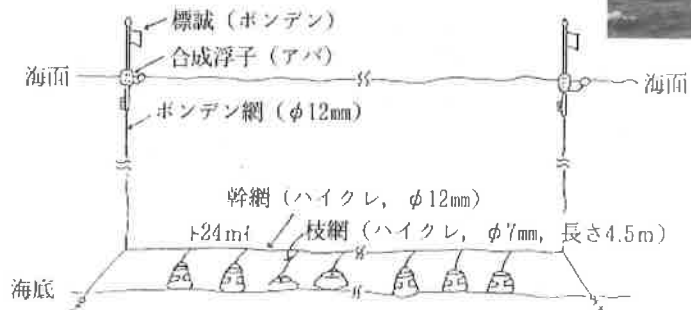 標誠（ボンデン）
合成浮子（アバ）
海面
海面
ボンデン網（φ12㎜）
幹網（ハイクレ，φ12㎜）
24m
枝網（ハイクレ，φ7㎜，長さ4.5m）
海底